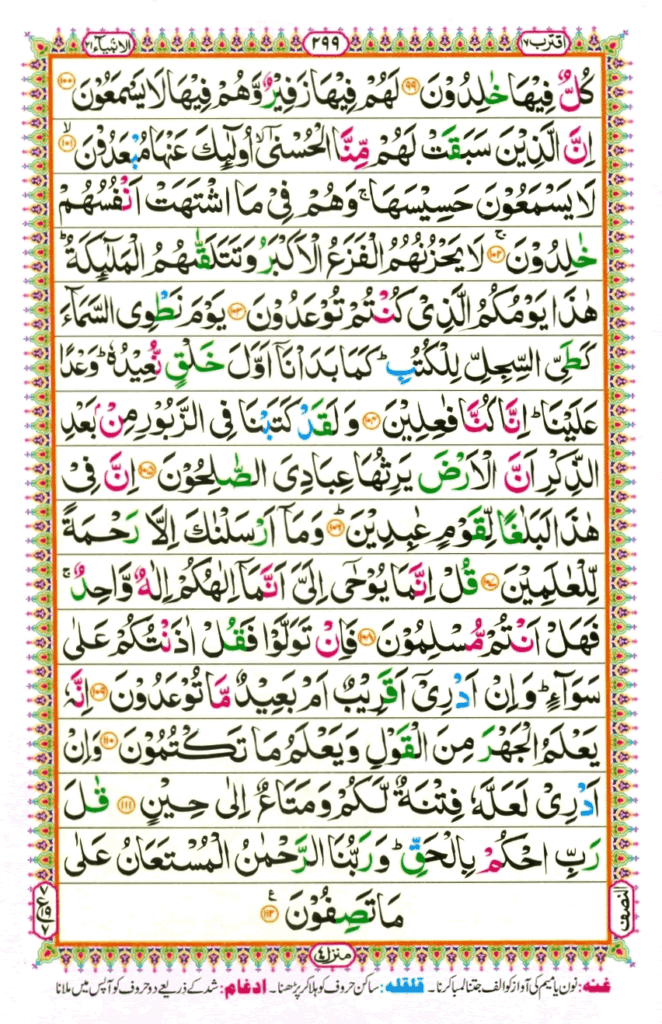 اقترب ۱۷
۲۹۹
الانبیآء ۲۱
كُلٌّ فِیْهَا خٰلِدُوْنَ ۹۹ لَهُمْ فِیْهَا زَفِیْرٌ وَّهُمْ فِیْهَا لَا یَسْمَعُوْنَ ۱۰۰
اِنَّ الَّذِیْنَ سَبَقَتْ لَهُمْ مِّنَّا الْحُسْنٰۤی ۙ اُولٰٓئِكَ عَنْهَا مُبْعَدُوْنَ ۙ ۱۰۱
لَا یَسْمَعُوْنَ حَسِیْسَهَا ۚ وَهُمْ فِیْ مَا اشْتَهَتْ اَنْفُسُهُمْ
خٰلِدُوْنَ ۚ ۱۰۲ لَا یَحْزُنُهُمُ الْفَزَعُ الْاَكْبَرُ وَتَتَلَقّٰىهُمُ الْمَلٰٓئِكَةُ ؕ
هٰذَا یَوْمُكُمُ الَّذِیْ كُنْتُمْ تُوْعَدُوْنَ ۱۰۳ یَوْمَ نَطْوِی السَّمَآءَ
كَطَیِّ السِّجِلِّ لِلْكُتُبِ ؕ كَمَا بَدَاْنَاۤ اَوَّلَ خَلْقٍ نُّعِیْدُهٗ ؕ وَعْدًا
عَلَیْنَا ؕ اِنَّا كُنَّا فٰعِلِیْنَ ۱۰۴ وَلَقَدْ كَتَبْنَا فِی الزَّبُوْرِ مِنْۢ بَعْدِ
الذِّكْرِ اَنَّ الْاَرْضَ یَرِثُهَا عِبَادِیَ الصّٰلِحُوْنَ ۱۰۵ اِنَّ فِیْ
هٰذَا لَبَلٰغًا لِّقَوْمٍ عٰبِدِیْنَ ؕ ۱۰۶ وَمَاۤ اَرْسَلْنٰكَ اِلَّا رَحْمَةً
لِّلْعٰلَمِیْنَ ۱۰۷ قُلْ اِنَّمَا یُوْحٰۤی اِلَیَّ اَنَّمَاۤ اِلٰهُكُمْ اِلٰهٌ وَّاحِدٌ ۚ
فَهَلْ اَنْتُمْ مُّسْلِمُوْنَ ۱۰۸ فَاِنْ تَوَلَّوْا فَقُلْ اٰذَنْتُكُمْ عَلٰی
سَوَآءٍ ؕ وَاِنْ اَدْرِیْۤ اَقَرِیْبٌ اَمْ بَعِیْدٌ مَّا تُوْعَدُوْنَ ۱۰۹ اِنَّهٗ
یَعْلَمُ الْجَهْرَ مِنَ الْقَوْلِ وَیَعْلَمُ مَا تَكْتُمُوْنَ ۱۱۰ وَاِنْ
اَدْرِیْ لَعَلَّهٗ فِتْنَةٌ لَّكُمْ وَمَتَاعٌ اِلٰی حِیْنٍ ۱۱۱ قٰلَ
رَبِّ احْكُمْ بِالْحَقِّ ؕ وَرَبُّنَا الرَّحْمٰنُ الْمُسْتَعَانُ عَلٰی
مَا تَصِفُوْنَ ۱۱۲ ع
النصف
۷ ع ۱۹ ۷
منزل ۴
غنہ: نون یا میم کی آواز کو الف جتنا لمبا کرنا۔ قلقلہ: ساکن حروف کو ہلا کر پڑھنا۔ ادغام: شد کے ذریعے دو حروف کو آپس میں ملانا